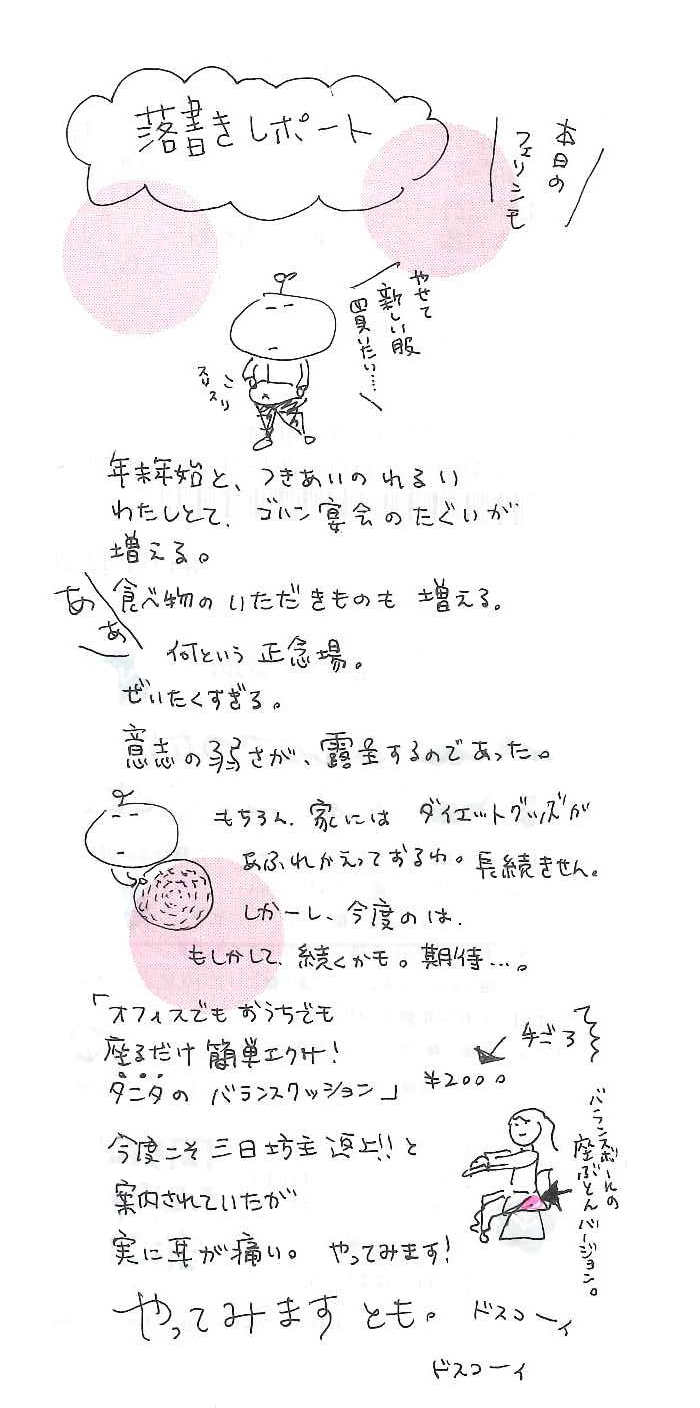 落書きレポート
本日の
フェリシモ
やせて
新しい服
買いたい……
スリスリ
年末年始と、つきあいの れるい
わたしとて、ゴハン 宴会のたぐいが
増える。
ああ
食べ物の いただきものも 増える。
何という 正念場。
ぜいたくすぎる。
意志の弱さが、露呈するのであった。
もちろん、家には ダイエットグッズが
あふれかえっておるわ。長続きせん。
しかーし、今度のは、
もしかして、続くかも。期待…。
「オフィスでも おうちでも
座るだけ 簡単エクサ!
タニタの バランスクッション」
¥2000
手ごろ
今度こそ 三日坊主 返上!!と
案内されていたが
実に耳が痛い。 やってみます!
バランスボールの
座ぶとんバージョン。
やってみます とも。 ドスコーイ
ドスコーイ